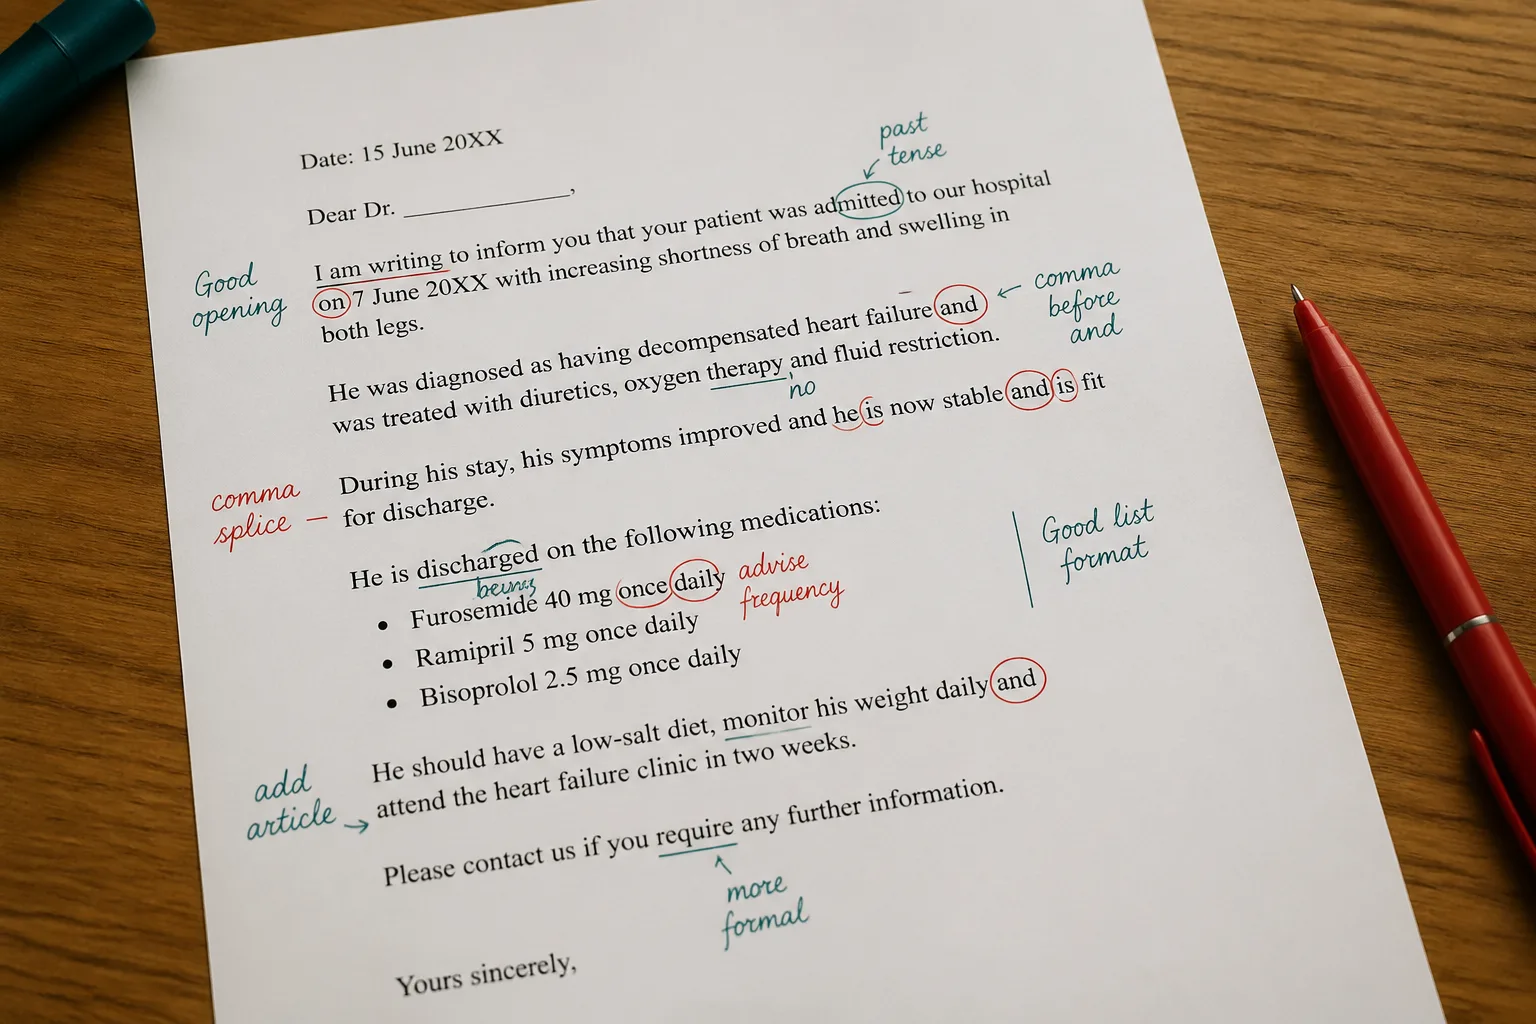 Date: 15 June 20XX
past
tense
Dear Dr. ____________,
I am writing to inform you that your patient was admitted to our hospital
on 7 June 20XX with increasing shortness of breath and swelling in
both legs.
Good
opening
He was diagnosed as having decompensated heart failure and
was treated with diuretics, oxygen therapy, and fluid restriction.
no
comma
before
and
During his stay, his symptoms improved and he is now stable and is fit
for discharge.
comma
splice —
He is discharged on the following medications:
being
• Furosemide 40 mg once daily
advise
frequency
• Ramipril 5 mg once daily
• Bisoprolol 2.5 mg once daily
Good list
format
He should have a low-salt diet, monitor his weight daily and
attend the heart failure clinic in two weeks.
add
article →
Please contact us if you require any further information.
more
formal
Yours sincerely,